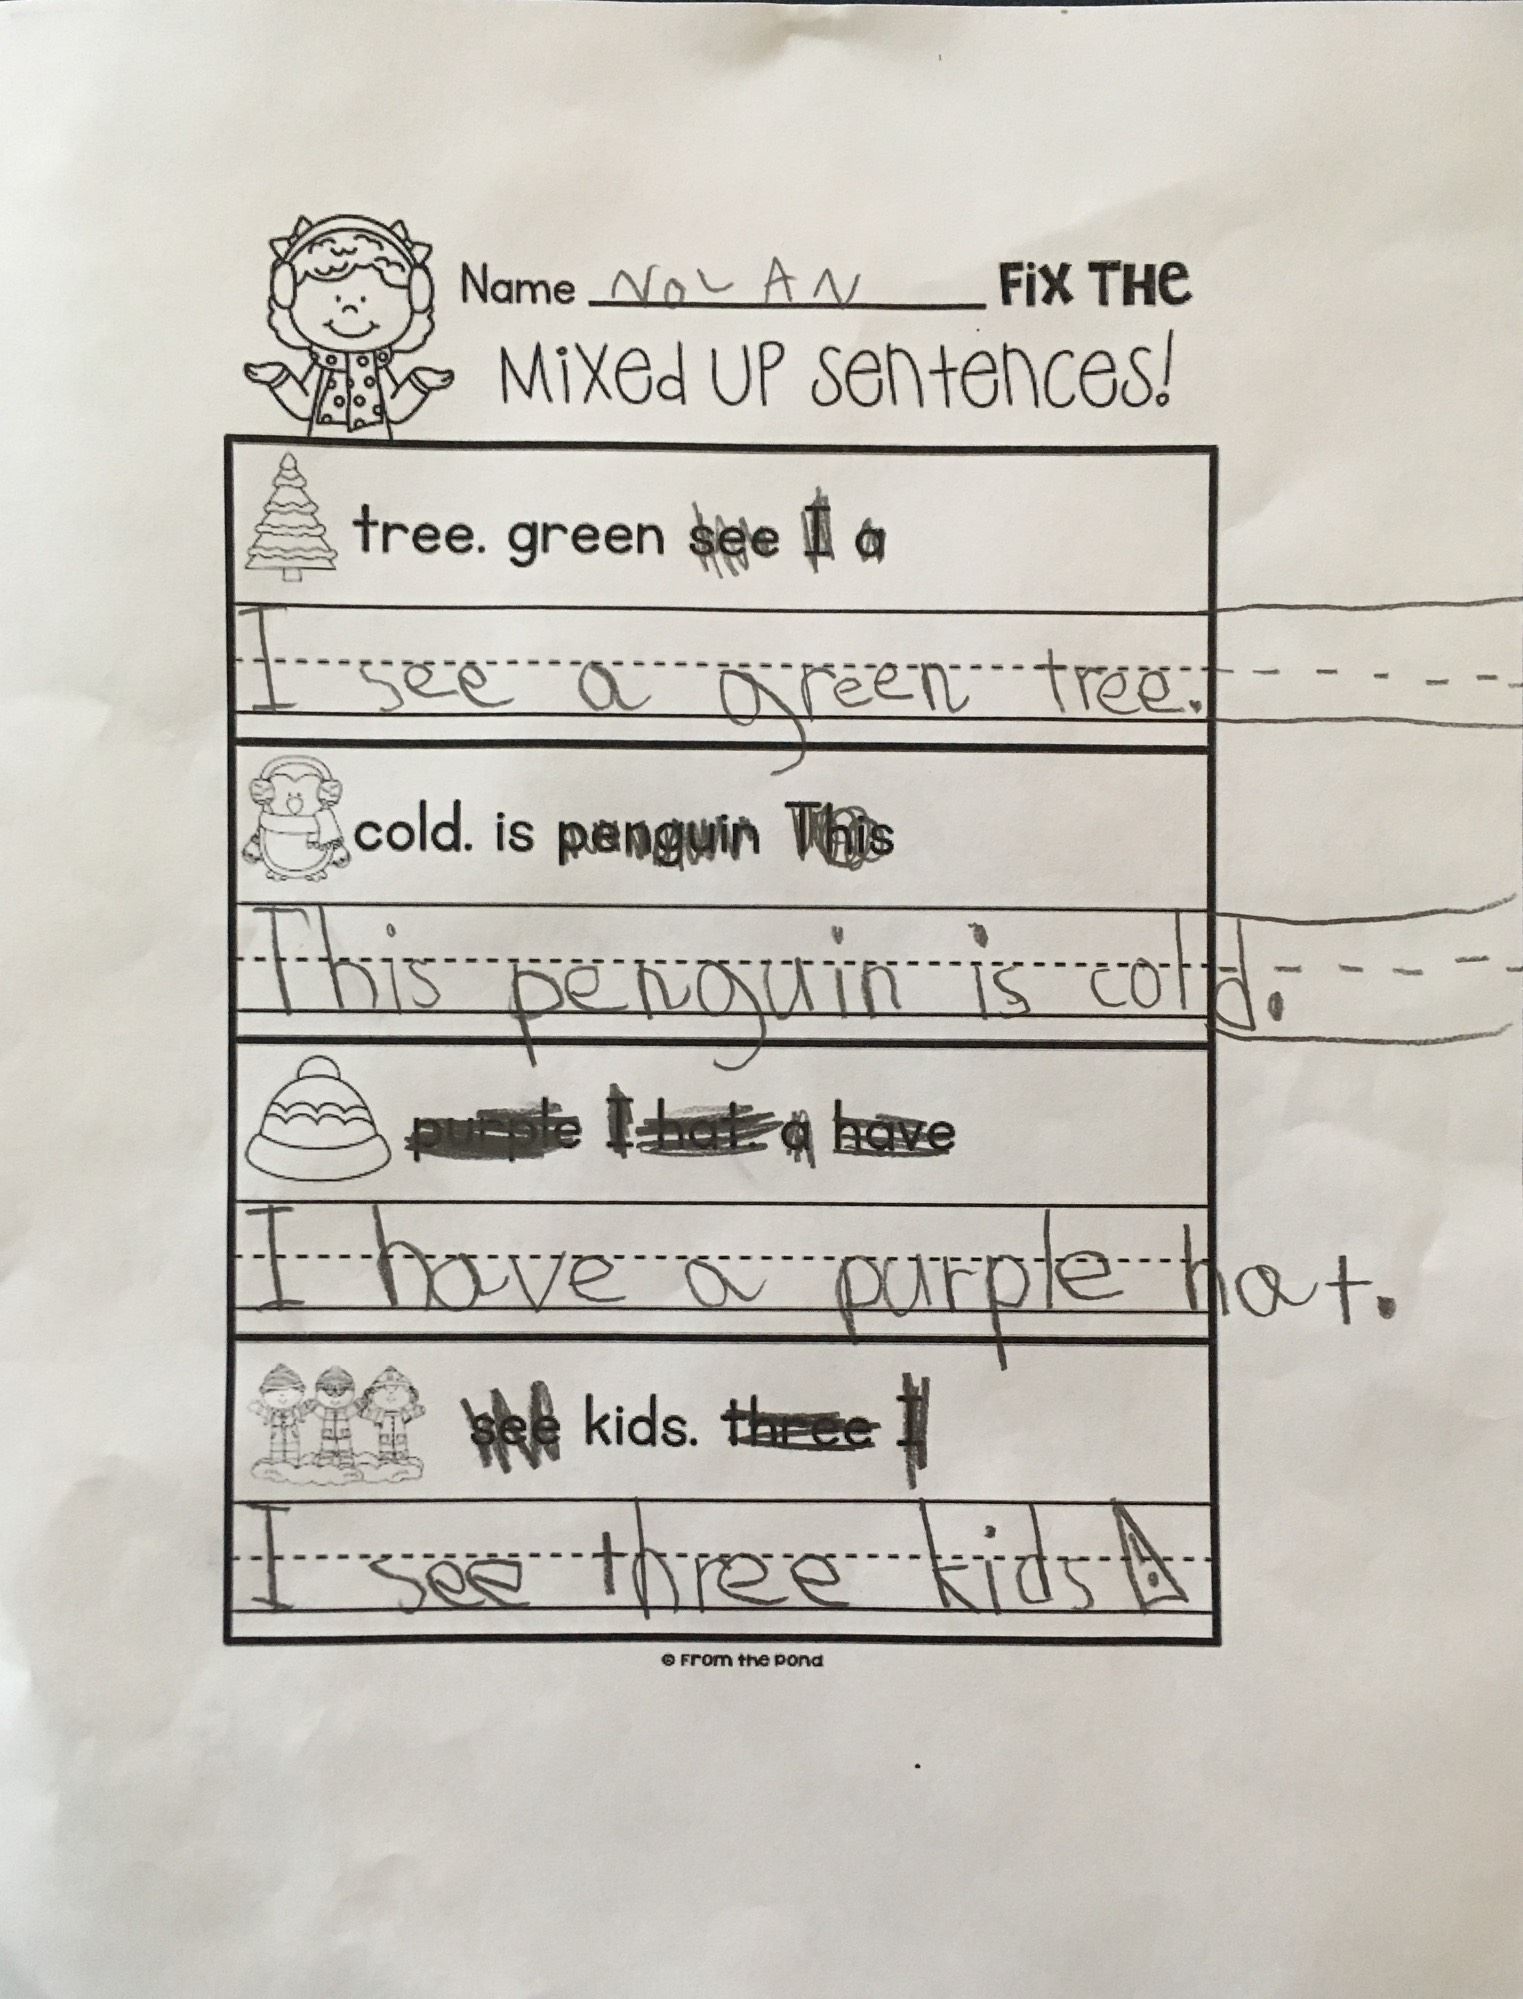 Name NOLAN FiX THe
Mixed UP sentences!
tree. green see I a
I see a green tree.
cold. is penguin This
This penguin is cold.
purple I hat. a have
I have a purple hat.
see kids. three I
I see three kids.
© From the Pond